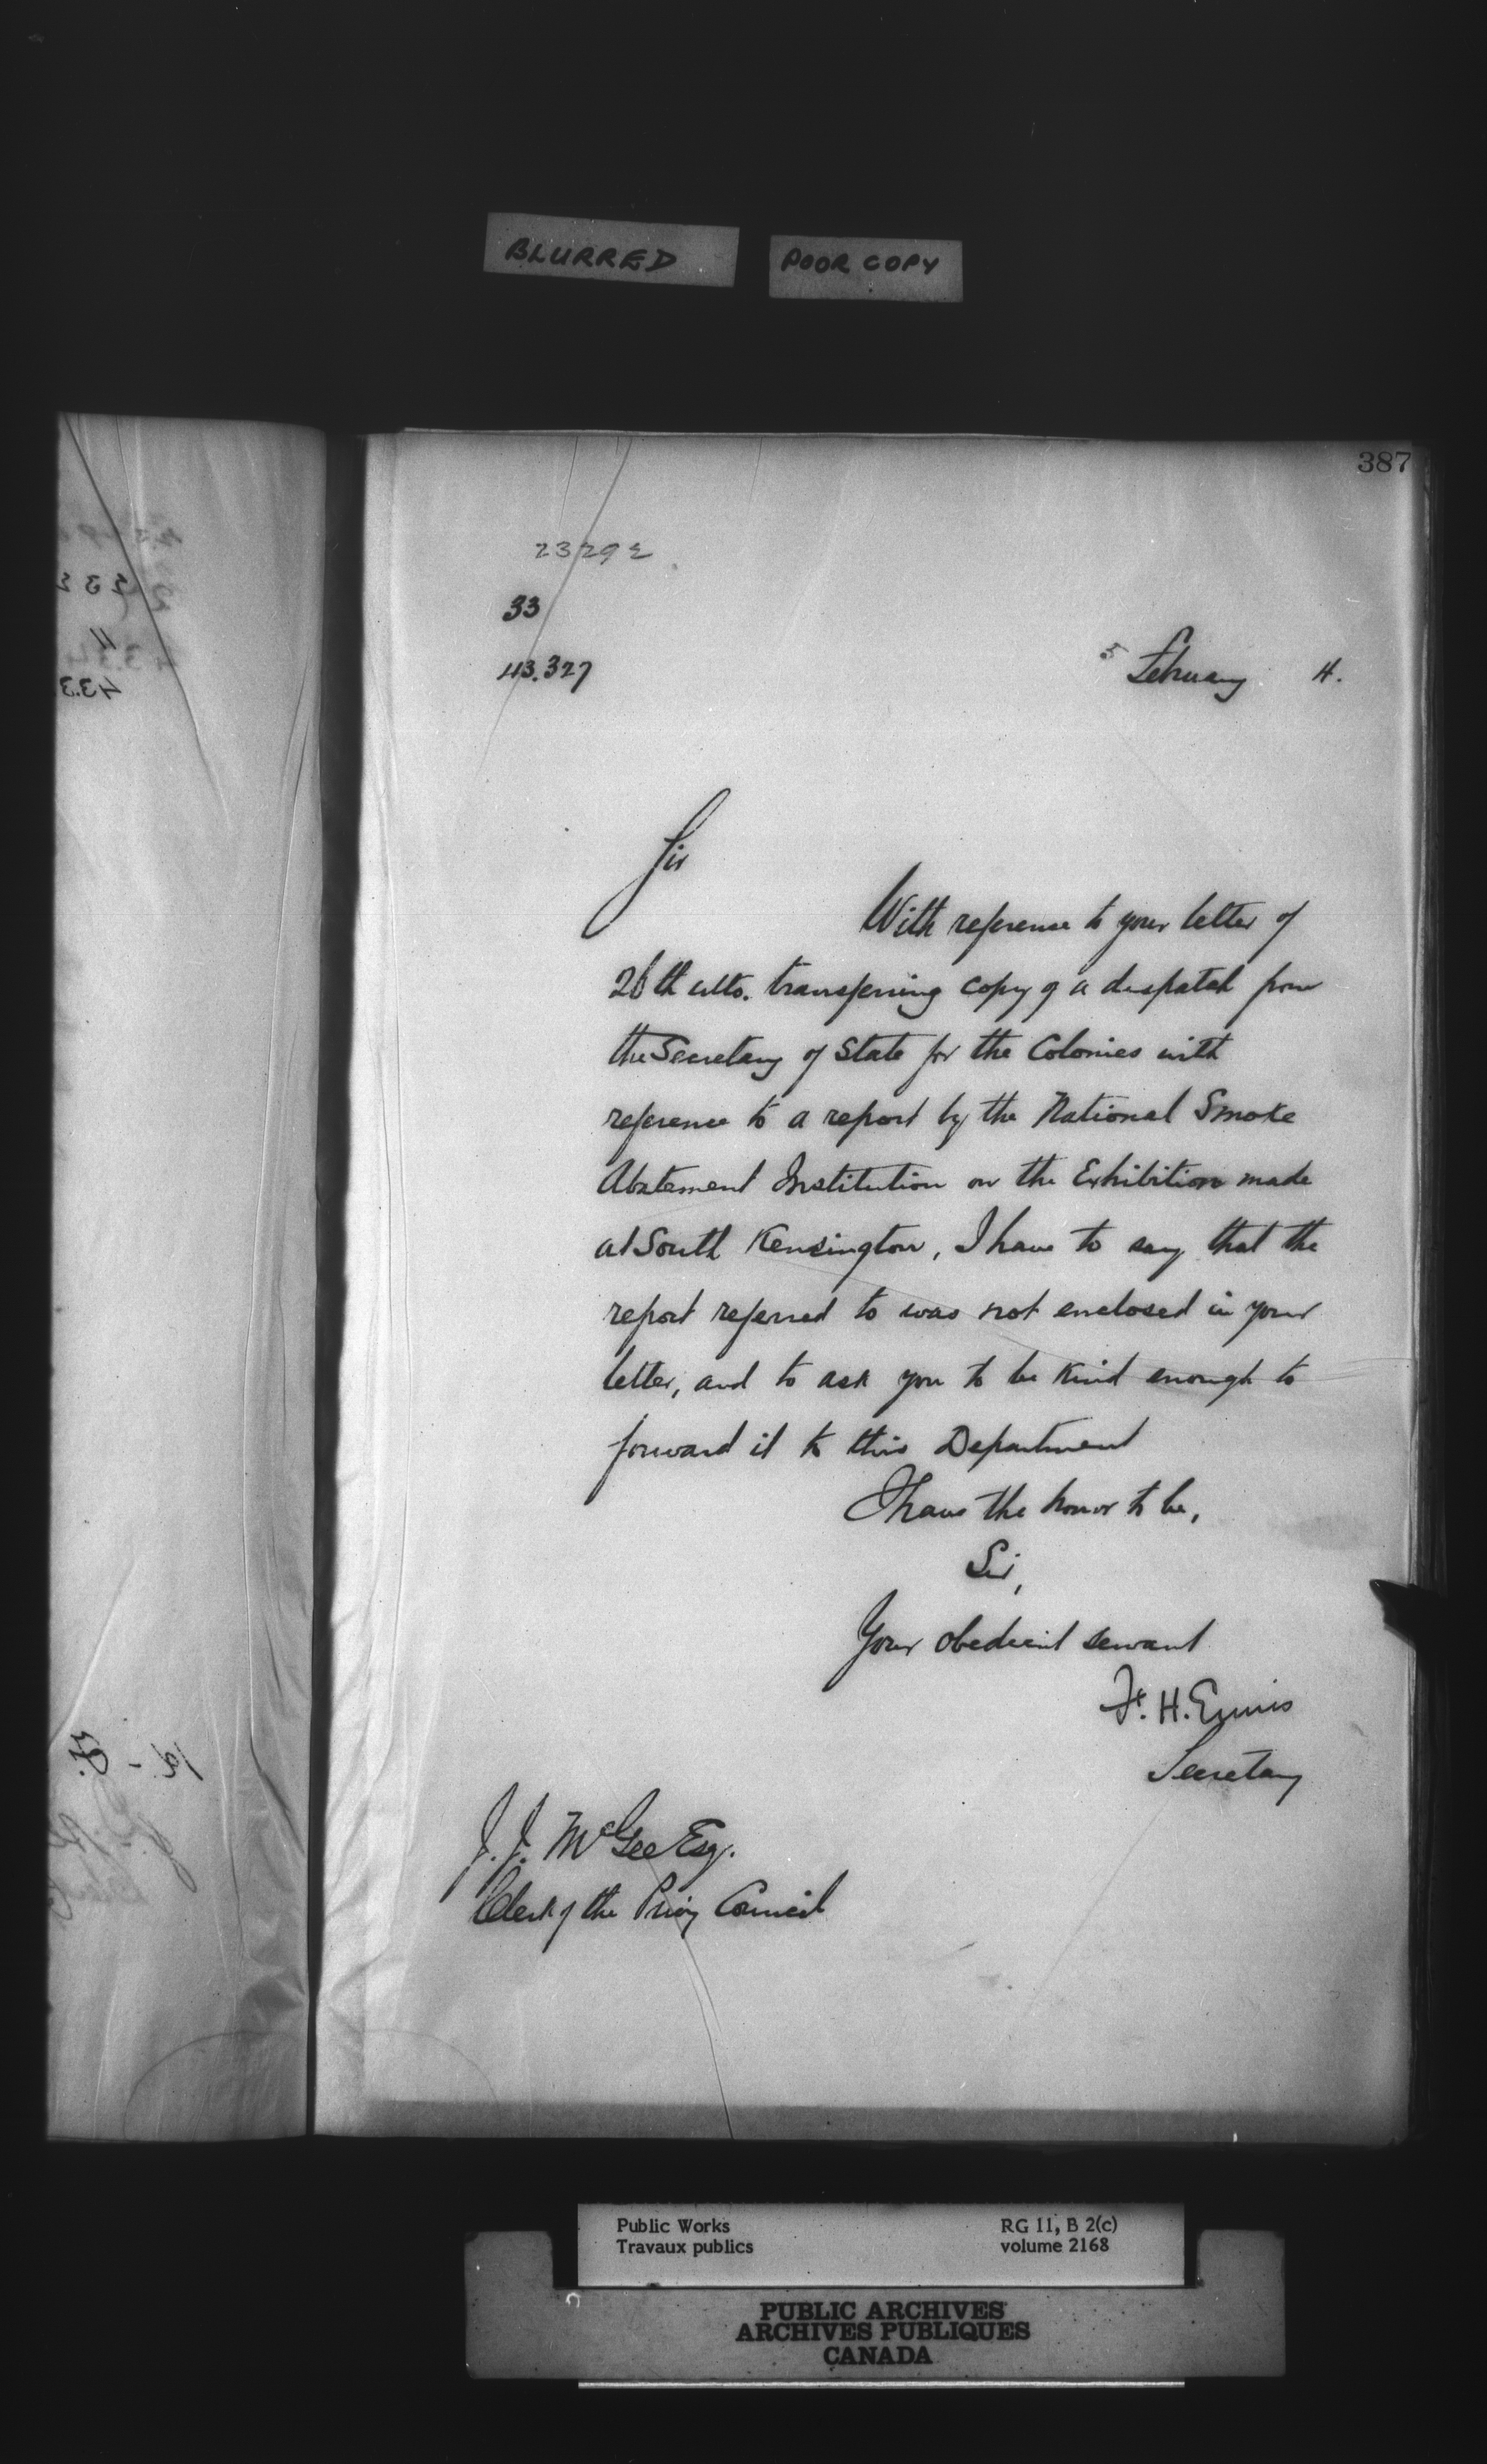 BLURRED
POOR COPY
387
2329 2
33
43.327
5 February 4.
Sir
With reference to your letter of
26th ulto. transferring copy of a despatch from
the Secretary of State for the Colonies with
reference to a report by the National Smoke
Abatement Institution on the Exhibition made
at South Kensington, I have to say that the
report referred to was not enclosed in your
letter, and to ask you to be kind enough to
forward it to this Department
I have the honor to be,
Sir,
Your obedient servant
F. H. Ennis
Secretary
J. J. McGee Esq.
Clerk of the Privy Council
Public Works
Travaux publics
RG 11, B 2(c)
volume 2168
PUBLIC ARCHIVES
ARCHIVES PUBLIQUES
CANADA